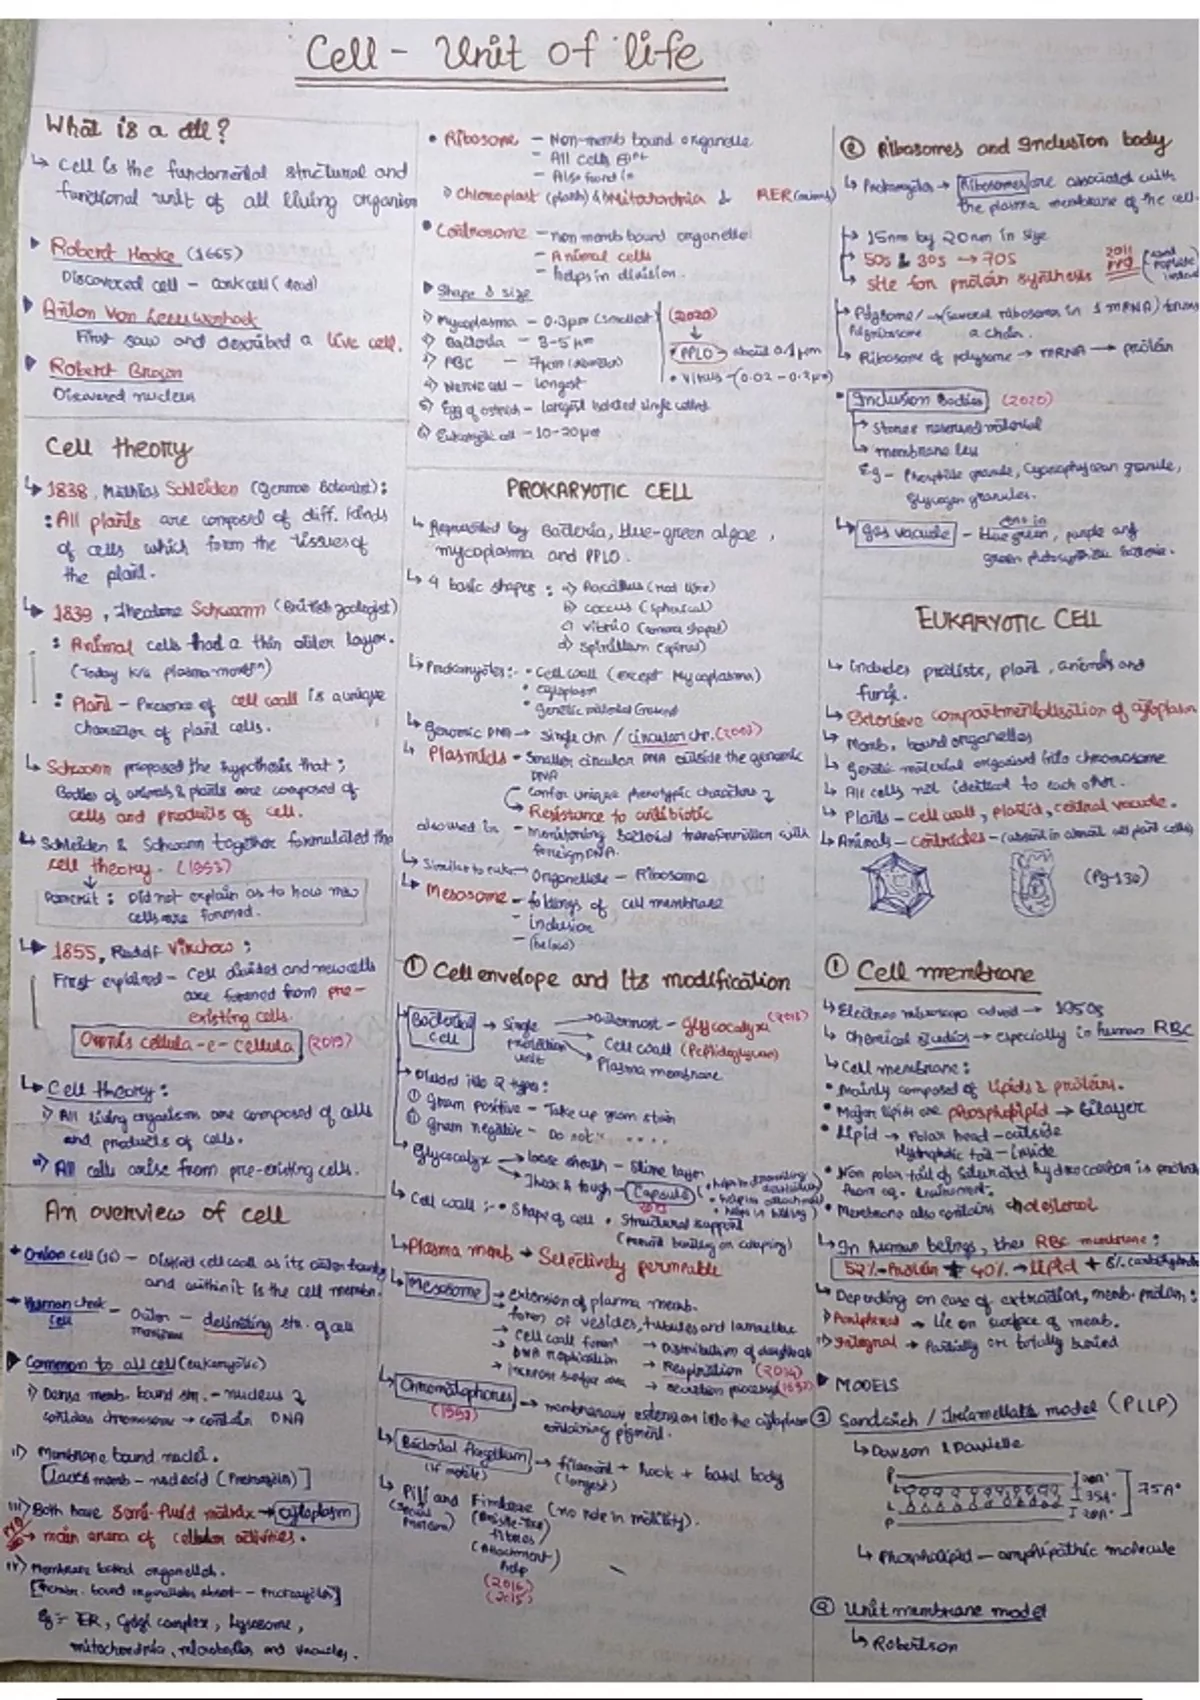 Cell - Unit of life
What is a cell?
↳ Cell is the fundamental structural and
functional unit of all living organism
▸ Robert Hooke (1665)
Discovered cell - cork cell (dead)
▸ Anton Von Leeuwenhoek
First saw and described a live cell.
▸ Robert Brown
Discovered nucleus
Cell theory
↳ 1838, Mathias Schleiden (German Botanist):
: All plants are composed of diff. kinds
of cells which form the tissues of
the plant.
↳ 1839, Theodore Schwann (British zoologist)
: Animal cells had a thin outer layer.
(Today k/a plasma membn)
: Plant - Presence of cell wall is a unique
character of plant cells.
↳ Schwann proposed the hypothesis that ;
Bodies of animals & plants are composed of
cells and products of cell.
↳ Schleiden & Schwann together formulated the
cell theory. (1993)
: Did not explain as to how new
cells are formed.
↳ 1855, Rudolf Virchow ;
First explained - Cell divided and new cells
are formed from pre-
existing cells.
Omnis cellula-e-cellula (2019)
↳ Cell theory :
i) All living organisms are composed of cells
and products of cells.
ii) All cells arise from pre-existing cells.
An overview of cell
Onion cell - Distinct cell wall as its outer boundry
and within it is the cell membn.
Human cheek cell - Outer membrane - delimiting str. of cell
▸ Common to all cell (eukaryotic)
i) Dense memb. bound str. - nucleus
contains chromosome → contain DNA
ii) Membrane bound nuclei.
[lacks memb - nucleoid (Prokaryotes)]
iii) Both have semi-fluid matrix → cytoplasm
→ main arena of cellular activities.
iv) Membrane bound organelles.
[memb. bound organelles absent - Prokaryotes]
Eg :- ER, Golgi complex, Lysosome,
mitochondria, microbodies and vacuoles.
• Ribosome - Non-memb bound organelle
- All cells
- Also found in
Chloroplast (plants) & Mitochondria & RER
• Centrosome - non memb bound organelle
- Animal cells
- helps in division.
▸ Shape & size
1) Mycoplasma - 0.3μm (smallest)
2) Bacteria - 3-5 μm
3) RBC - 7μm
4) Nerve cell - longest
5) Egg of ostrich - largest isolated single cell
6) Eukaryotic cell - 10-20μm
(2020)
PPLO → about 0.1 μm
• Virus - (0.02 - 0.2μm)
PROKARYOTIC CELL
↳ Represented by Bacteria, blue-green algae,
mycoplasma and PPLO.
↳ 4 basic shapes : a) Bacillus (rod like)
b) coccus (spherical)
c) vibrio (comma shaped)
d) spirillum (spiral)
↳ Prokaryotes :- • Cell wall (except Mycoplasma)
• cytoplasm
• genetic material
↳ genomic DNA → Single chr / circular chr.
↳ Plasmids - Smaller circular DNA outside the genomic
DNA
Confer unique phenotypic characters
Resistance to antibiotic
also used in - monitoring bacterial transformation with
foreign DNA.
↳ Similar to euk → Organellele - Ribosome
↳ Mesosome - foldings of cell membrane
- inclusion
- (below)
① Cell envelope and its modification
↳ Bacterial cell → Single protection unit
→ Outermost - glycocalyx
→ Cell wall (Peptidoglycan)
→ Plasma membrane
→ Divided into 2 types :
① Gram positive - Take up gram stain
② Gram negative - Do not " " " "
↳ Glycocalyx → loose sheath - Slime layer
→ Thick & tough - Capsule
↳ Cell wall :- • Shape of cell • Structural support
(prevent bursting or collapsing)
↳ Plasma memb → Selectively permeable
↳ Mesosome → extension of plasma memb.
→ form of vesicles, tubules and lamellae
→ Cell wall formn → Distribution of daughter
→ DNA replication → Respiration (2014)
→ increase surface area → secretion process
↳ Chromatophores → membranous extension into the cytoplasm
containing pigment.
↳ Bacterial flagellum → filament + hook + basal body
(if motile) (longest)
↳ Pili and Fimbriae (no role in motility).
(Attachment)
(2016)
(2015)
② Ribosomes and Inclusion body
↳ Prokaryotes → Ribosomes are associated with
the plasma membrane of the cell.
→ 15nm by 20nm in size
→ 50s & 30s → 70s
↳ site for protein synthesis
→ Polysome/ → (several ribosomes in 1 mRNA) forms
a chain.
↳ Ribosome of polysome → mRNA → protein
• Inclusion Bodies (2020)
→ Stores reserved material
→ membrane less
Eg - Phosphate granule, Cyanophycean granule,
Glycogen granules.
↳ gas vacuole - blue green, purple and
green photosynthetic bacteria.
EUKARYOTIC CELL
↳ includes protists, plant, animals and
fungi.
↳ Extensive compartmentalisation of cytoplasm
↳ Memb. bound organelles
↳ genetic material organised into chromosome
↳ All cells not identical to each other.
↳ Plants - cell wall, plastid, central vacuole.
↳ Animals - centrioles - (absent in almost all plant cells)
(Pg-130)
① Cell membrane
↳ Electron microscope → 1950s
↳ Chemical studies → especially in human RBC
↳ Cell membrane :
• Mainly composed of lipids & proteins.
• Major lipids are phospholipid → bilayer
• Lipid → Polar head - outside
Hydrophobic tail - inside
• Non polar tail of saturated hydrocarbon is protected
from aq. environment.
• Membrane also contains cholesterol
↳ In human beings, the RBC membrane :
52% - Protein + 40% → lipid + 8% carbohydrate
↳ Depending on ease of extraction, memb. protein :
i) Peripheral → Lie on surface of memb.
ii) Integral → Partially or totally buried
▸ MODELS
① Sandwich / Trilamellate model (PLLP)
↳ Davson & Danielle
P
L
L
P
20A°
35A°
20A°
75A°
↳ Phospholipid - amphipathic molecule
② Unit membrane model
↳ Robertson